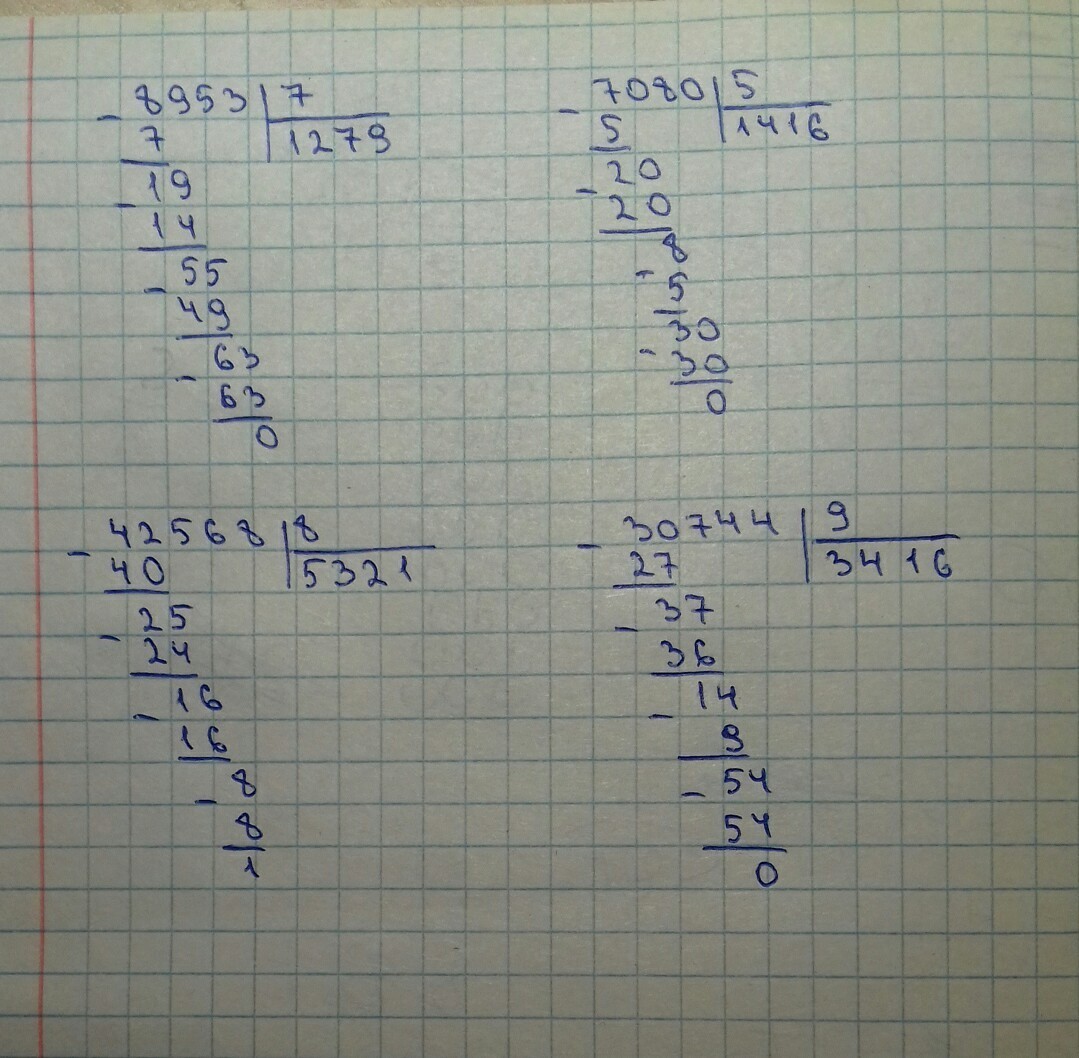 - 8953 | 7
7 | 1279
- 19
14
- 55
49
- 63
63
0
- 7080 | 5
5 | 1416
- 20
20
- 8
5
- 30
30
0
- 42568 | 8
40 | 5321
- 25
24
- 16
16
- 8
8
1
- 30744 | 9
27 | 3416
- 37
36
- 14
9
- 54
54
0